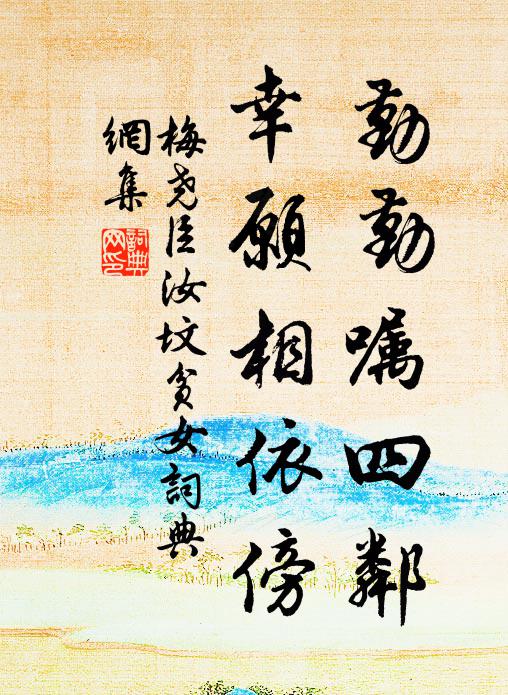 勤勤嘱四鄰
幸願相依傍
梅尧臣汝坟貧女詞典
網集
詞典
网印